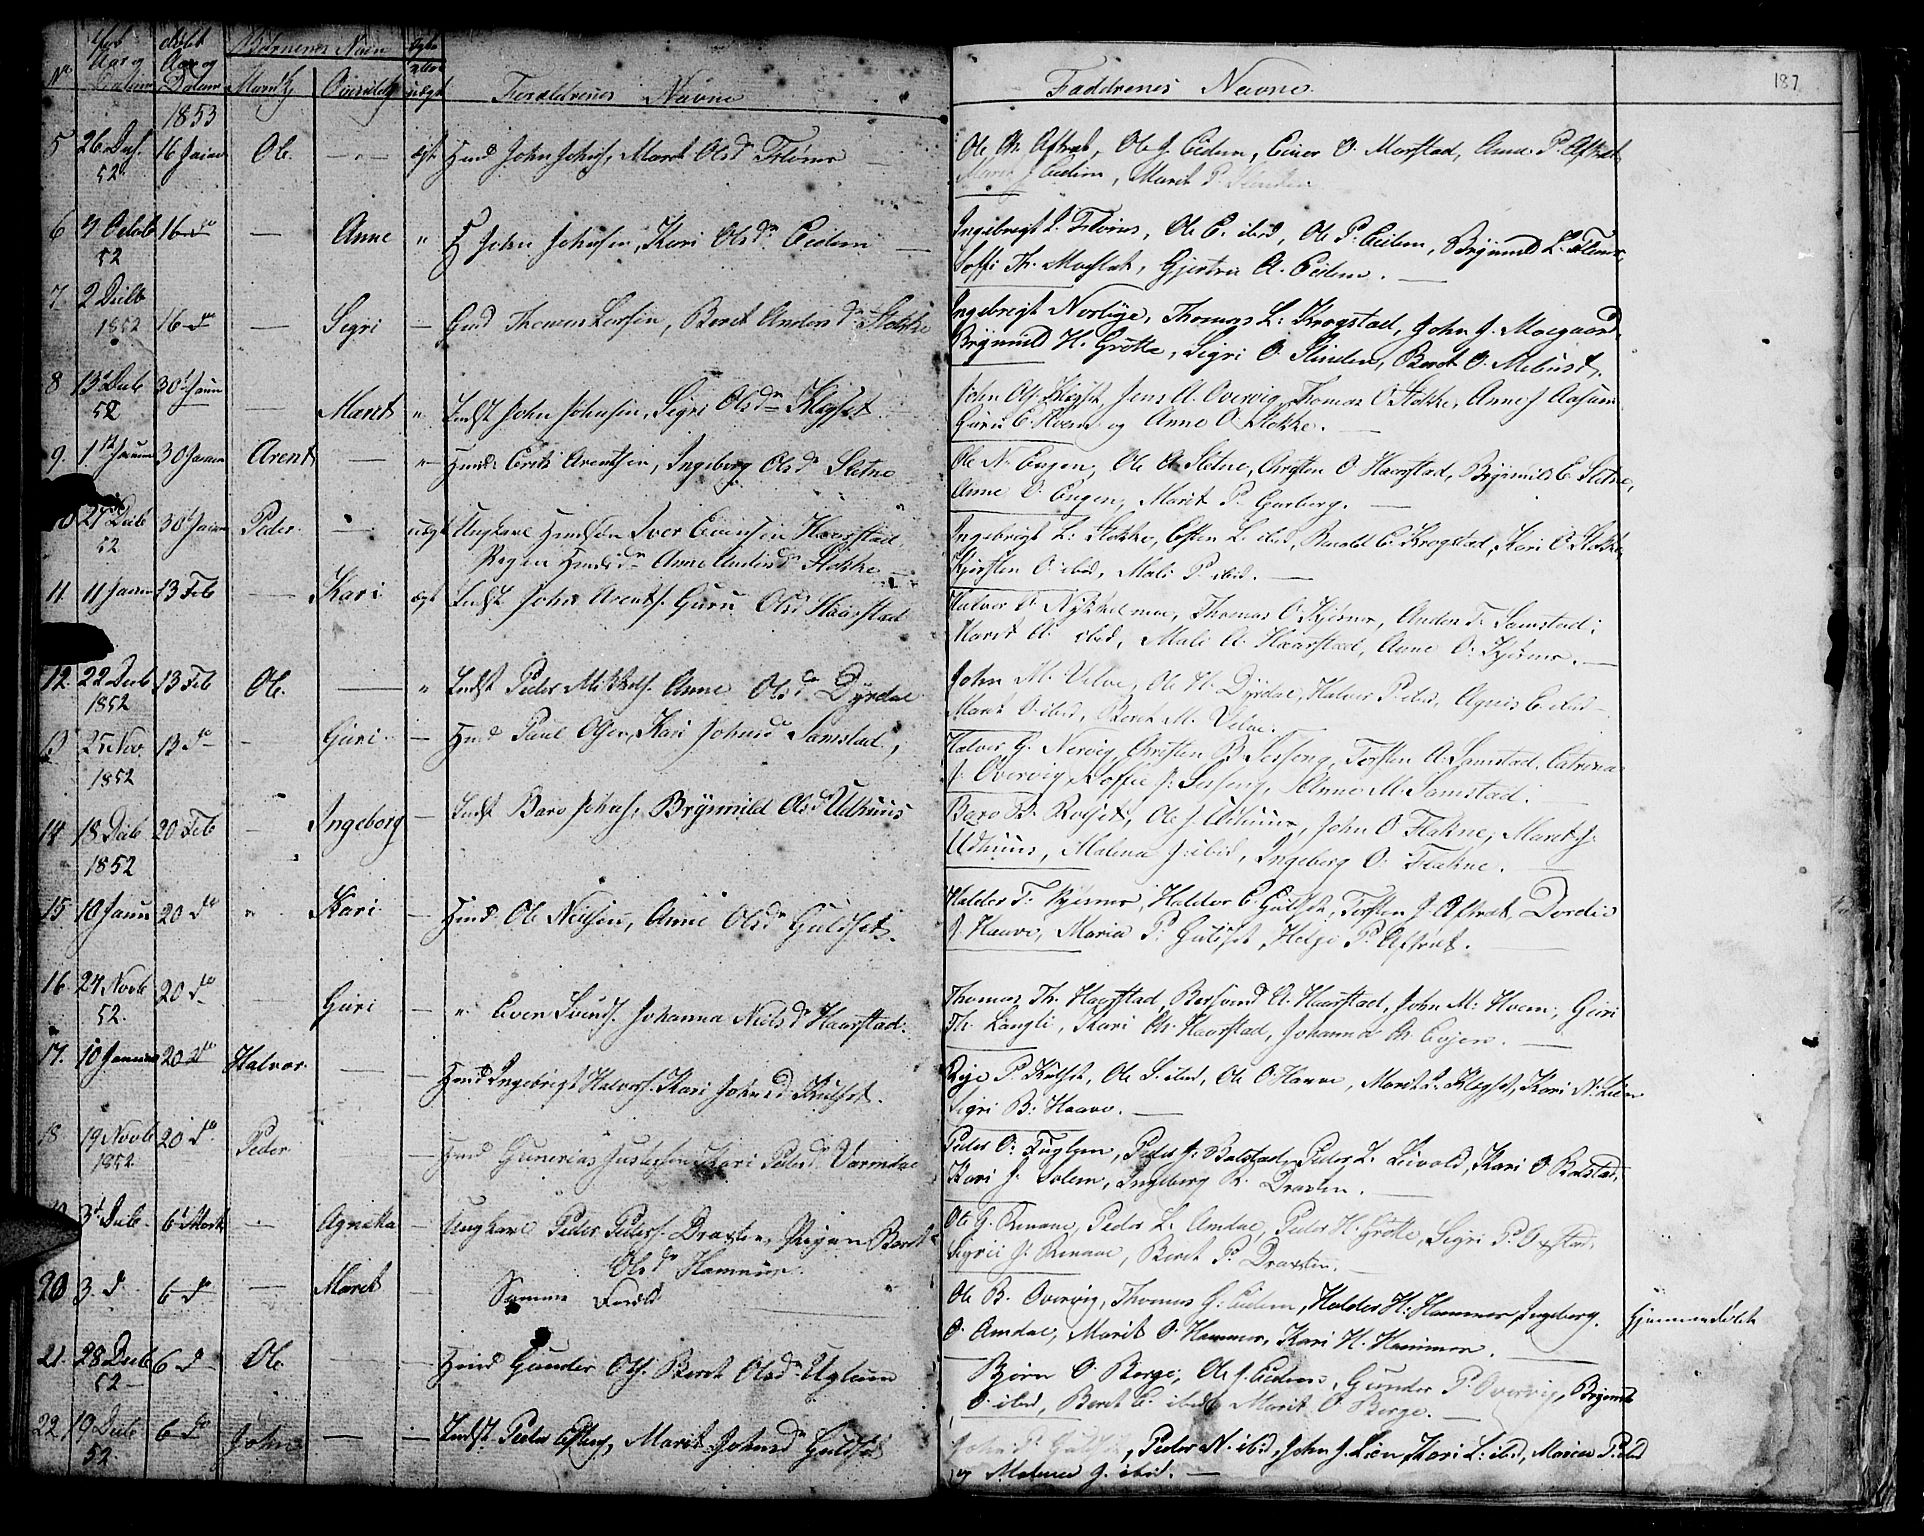 187
No født Aar og Datum døbt Aar og Datum Børnenes Navn Mandk Qvindk ægte eller uægt Forældrenes Navne Faddrenes Navne
1853
5 26 52 16 Januar Ole ægt Hmd John Johns. Marit Olsd Flönes
Ole Ch. Aftret, Ole J. Eidem, Einer O. Marstad, Anne P. Aftret
Marit J Eidem, Marit P.
6 4 Octob 52 16 do Anne " H John Johnsen, Kari Olsdr Eidem
Ingebrigt L. Flönes, Ole E. ibid, Ole P. Eidem, Brynild L. Flönes,
Soffi Th. Moslet, Gjertru A. Eidem.
7 2 Decb 1852 16 do Segri Gmd Thomas Larsen, Beret Andersdr Stokke
Ingebrigt Norbye, Thomas L. Krogstad, John J. Moegaard,
Brynild H. Grötte, Sigri O. Slinden, Beret O. Mebust.
8 13 Decb 52 30 Janu Maret " Indst John Johnsen, Sigri Olsdr Klegset
John Ols. Klegset, Jens A. Overvig, Thomas O Stokke, Anne J Aasum
Guru E. Hoem og Anne O. Stokke.
9. 1 Januar 30 Januar Arent " Hmd Erik Arentsen, Ingeborg Olsdr Sletne
Ole N. Engen, Ole A Sletne, Christen O Haarstad, Brynild E. Sletne,
Anne O. Engen, Marit P. Garberg.
10 27 Decb 52 30 Januar Peder uægt Ungkarl Hmdsøn Iver Evensen Haarstad
Pigen Hmdsdr Anne Andersdr Stokke
Ingebrigt L. Stokke, Esten L. ibid, Barold E. Krogstad, Kari O. Stokke
Kjersten O. ibid, Mali P. ibid.
11. 11 Januar 13 Feb Kari ægt Indst John Arents. Guru Olsd Haarstad
Halvor O. Nykkelmoe, Thomas O. Kjösnes, Anders T. Samstad,
Marit A. ibid, Mali A. Haarstad, Anne O. Kjösnes.
12. 22 Decb 1852 13 Feb Ole " Indst Peder Mikkels. Anne Olsdr Dyrdal
John M. Velve, Ole H. Dyrdal, Halvor P. ibid, Agnis E. ibid
Marit O. ibid, Beret M. Velve.
13 25 Nov 1852 13 do Guri Hmd Paul Olsen, Kari Johnsd Samstad,
Halvor G. Nervig, Christen B. Sesseng, Torsten A. Samstad, Catrina
J. Overvig, Soffie J. Sesseng, Anne M. Samstad.
14 18 Decb 1852 20 Feb Ingeborg Indst Baro Johns. Brynild Olsdr Udhuus
Baro B. Rolset, Ole J. Udhuus, John O Flakne, Maret J.
Udhuus, Malena J. ibid, Ingeborg O. Flakne.
15 10 Janu 20 do " Kari Hmd Ole Nilsen, Anne Olsdr Guldset.
Haldor T. Kjösnes, Haldor E. Guldset, Torsten J. Aftret, Dordie
J. Haave, Maria P. Guldset, Helge P. Aftret.
16. 24 Novb 52. 20 do Guri " Even Svends. Johanna Nielsdr Haarstad.
Thomas Th. Haarstad, Barsvend A. Haarstad, John M. Hoem, Guri
Th. Langli, Kari Ch. Haarstad, Johanna Ch. Evjen.
17. 10 Januar 20 do Halvor Hmd Ingebrigt Halvors. Kari Johnsd Kulset.
P. Kulset, Ole S. ibid, Ole O Haave, Marit L. Klegset, Kari N. Lien
Sigri B. Haave.
18. 19 Novb 1852 20 do Peder Hmd Gunerius Kari Pedersd. Varmdal
Peder O. Fuglem, Peder J. Balstad, Peder L. Livold, Kari O Balstad,
Kari J. Solem, Ingeborg R. Draxten.
3 Decb. 6 Marts Agneta Ungkarl Peder Peders. Draxten, Pigen Beret
Olsdr Hammer.
Ole G. Renaae, Peder L. Amdal, Peder H. Grötte, Sigri P. Oxstad,
Sigrie J. Renaae, Beret P. Draxten.
20 3 d 6 d Maret Samme Foreld
Ole B. Overvig, Thomas G. Eidem, Haldor H. Hammer, Ingeborg Gjemmedöbt
O. Amdal, Marit O. Hammer, Kari H. Hammer.
21. 28 Decb 52 6 d Ole Hmd Gunder Ols. Beret Olsdr Uglem
Björn O. Berge, Ole J. Eidem, Gunder P. Overvig, Brynild
O. ibid, Beret E. ibid, Marit O. Berge.
22. 19 Decb 52. 6 do John Indst. Peder Estens, Marit Johnsdr Guldset
John P. Guldset, Peder N. ibid, John J. Lien, Kari L. ibid, Marie P. ibid
og Malena J. ibid.